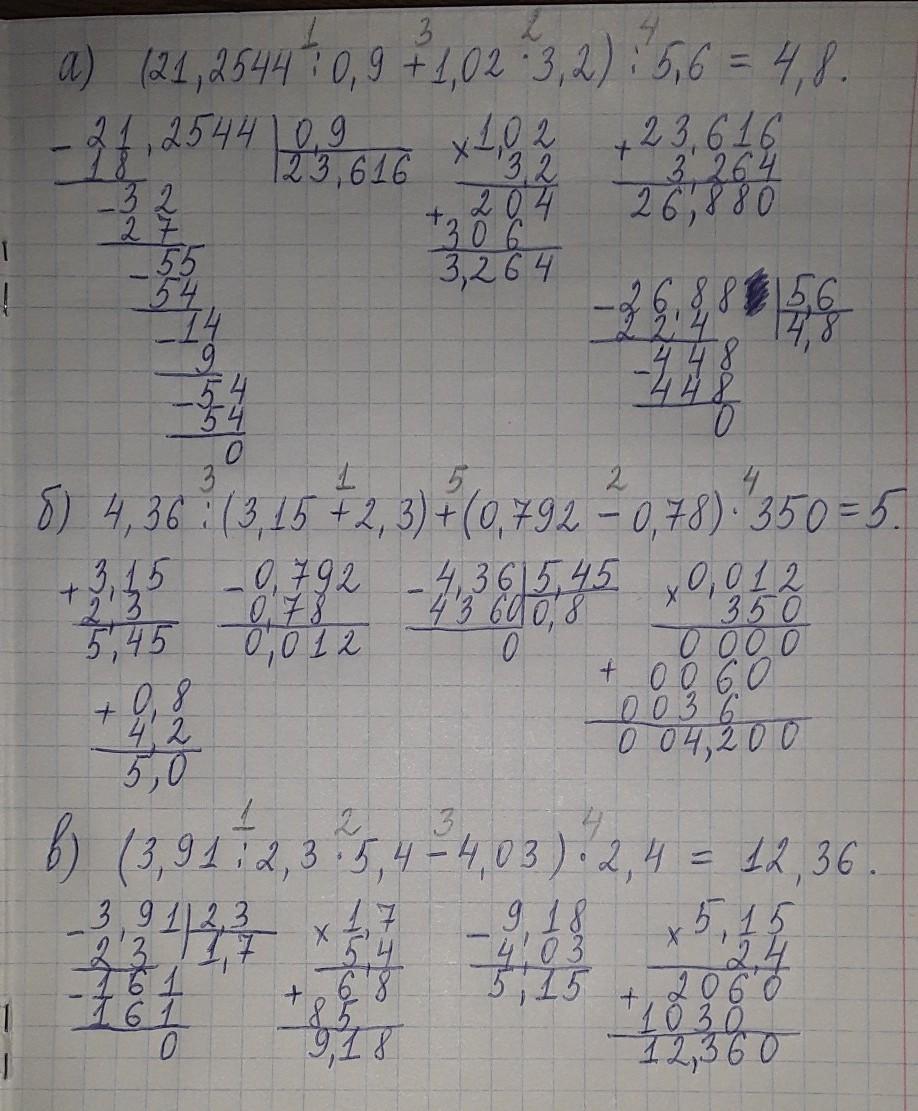 1 3 2 4
а) (21,2544 : 0,9 + 1,02 · 3,2) : 5,6 = 4,8.
- 21,2544 | 0,9
18 | 23,616
- 32
27
- 55
54
- 14
9
- 54
54
0
× 1,02
3,2
204
+ 306
3,264
+ 23,616
3,264
26,880
- 26,88 | 5,6
224 | 4,8
- 448
448
0
3 1 5 2 4
б) 4,36 : (3,15 + 2,3) + (0,792 - 0,78) · 350 = 5.
+ 3,15
2,3
5,45
- 0,792
0,78
0,012
- 4,36 | 5,45
4360 | 0,8
0
× 0,012
350
0000
+ 0060
0036
004,200
+ 0,8
4,2
5,0
1 2 3 4
в) (3,91 : 2,3 · 5,4 - 4,03) · 2,4 = 12,36.
- 3,91 | 2,3
23 | 1,7
- 161
161
0
× 1,7
5,4
68
+ 85
9,18
- 9,18
4,03
5,15
× 5,15
2,4
2060
+ 1030
12,360